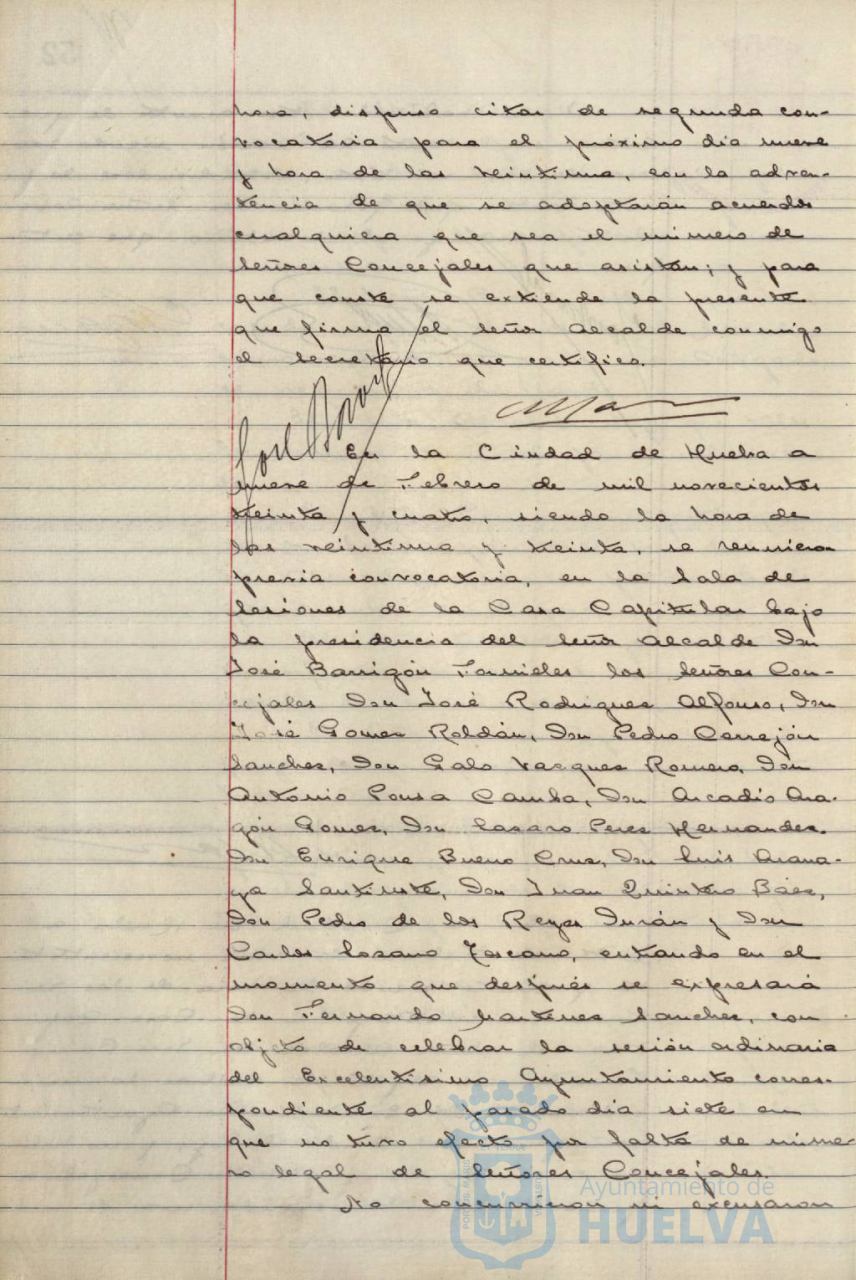 hora, dispuso citar de segunda con-
vocatoria para el próximo día nueve
y hora de las veintiuna, con la adver-
tencia de que se adoptarán acuerdos
cualquiera que sea el número de
señores Concejales que asistan; y para
que conste se extiende la presente
que firma el señor Alcalde conmigo
el secretario que certifico.
José Barrig
En la Ciudad de Huelva a
nueve de Febrero de mil novecientos
treinta y cuatro, siendo la hora de
las veintiuna y treinta, se reunieron
previa convocatoria, en la Sala de
sesiones de la Casa Capitular bajo
la presidencia del señor Alcalde Don
José Barrigón Fornieles los señores Con-
cejales Don José Rodríguez Alfonso, Don
José Gomez Roldán, Don Pedro Cerrejón
Sanchez, Don Galo Vazquez Romero, Don
Antonio Pousa Camba, Don Arcadio Ara-
gón Gomez, Don Lazaro Perez Hernandez,
Don Enrique Bueno Cruz, Don Luis Arana-
ga Santiuste, Don Juan Quintero Báez,
Don Pedro de los Reyes Durán y Don
Carlos Lozano Toscano, entrando en el
momento que después se expresará
Don Fernando Martinez Sanchez, con
objeto de celebrar la sesión ordinaria
del Excelentisimo Ayuntamiento corres-
pondiente al pasado día siete en
que no tuvo efecto por falta de núme-
ro legal de señores Concejales.
No concurrieron ni excusaron
Ayuntamiento de
HUELVA